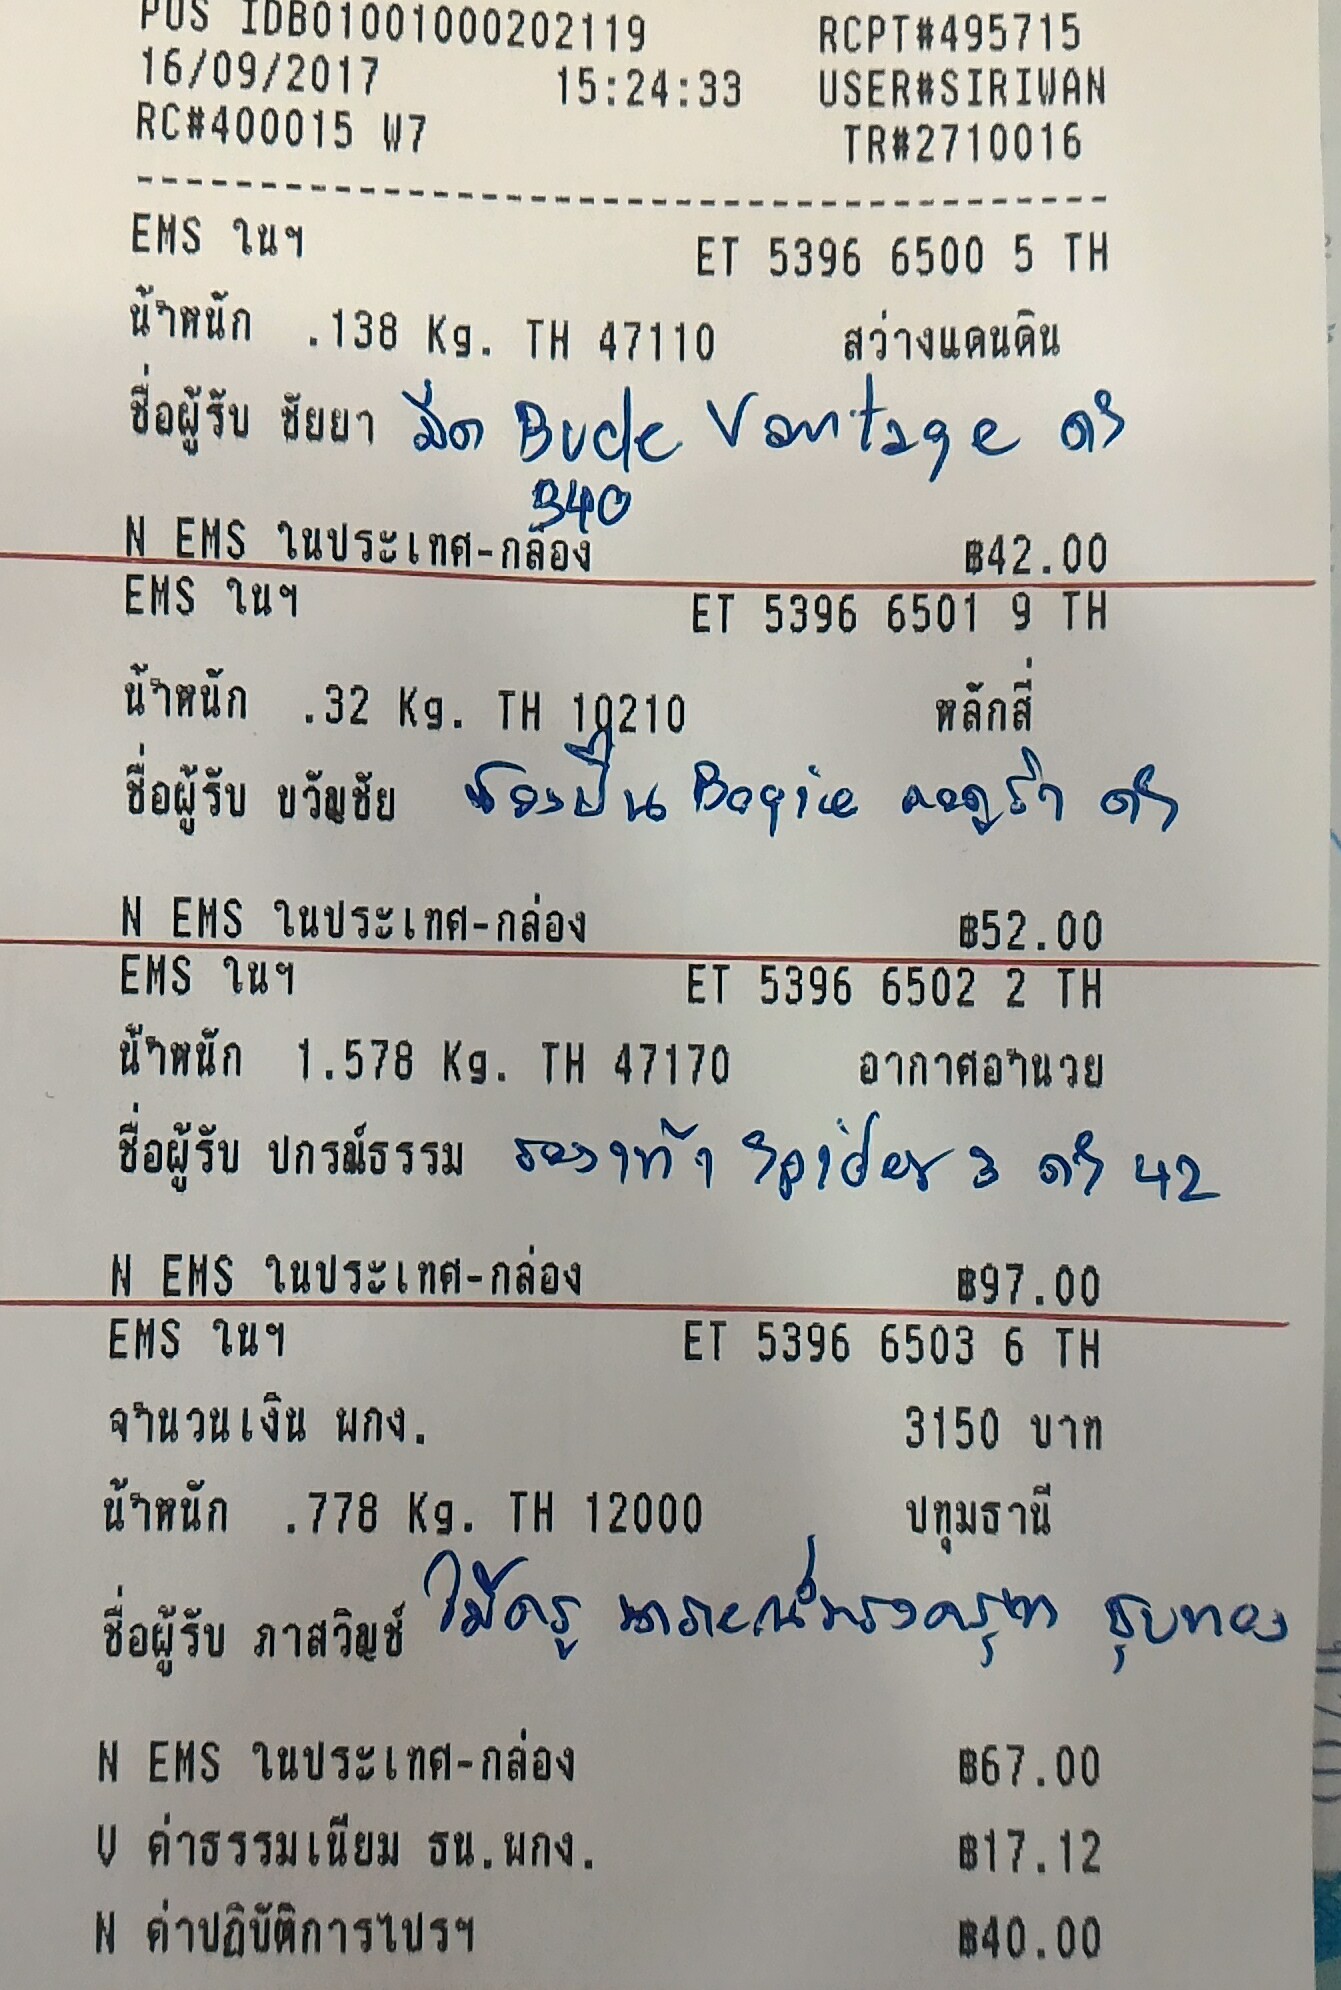 POS IDB01001000202119 RCPT#495715
16/09/2017 15:24:33 USER#SIRIWAN
RC#400015 W7 TR#2710016
EMS ในฯ ET 5396 6500 5 TH
น้ำหนัก .138 Kg. TH 47110 สว่างแดนดิน
ชื่อผู้รับ ชัยยา มีด Buck Vantage ดำ
340
N EMS ในประเทศ-กล่อง ฿42.00
EMS ในฯ ET 5396 6501 9 TH
น้ำหนัก .32 Kg. TH 10210 หลักสี่
ชื่อผู้รับ ขวัญชัย ซองปืน Bogie คอดูร่า ดำ
N EMS ในประเทศ-กล่อง ฿52.00
EMS ในฯ ET 5396 6502 2 TH
น้ำหนัก 1.578 Kg. TH 47170 อากาศอำนวย
ชื่อผู้รับ ปกรณ์ธรรม รองเท้า Spider 3 ดำ 42
N EMS ในประเทศ-กล่อง ฿97.00
EMS ในฯ ET 5396 6503 6 TH
จำนวนเงิน พกง. 3150 บาท
น้ำหนัก .778 Kg. TH 12000 ปทุมธานี
ชื่อผู้รับ ภาสวิญช์ ไม้ครู ชุบทอง
N EMS ในประเทศ-กล่อง ฿67.00
V ค่าธรรมเนียม ธน.พกง. ฿17.12
N ค่าปฏิบัติการไปรฯ ฿40.00